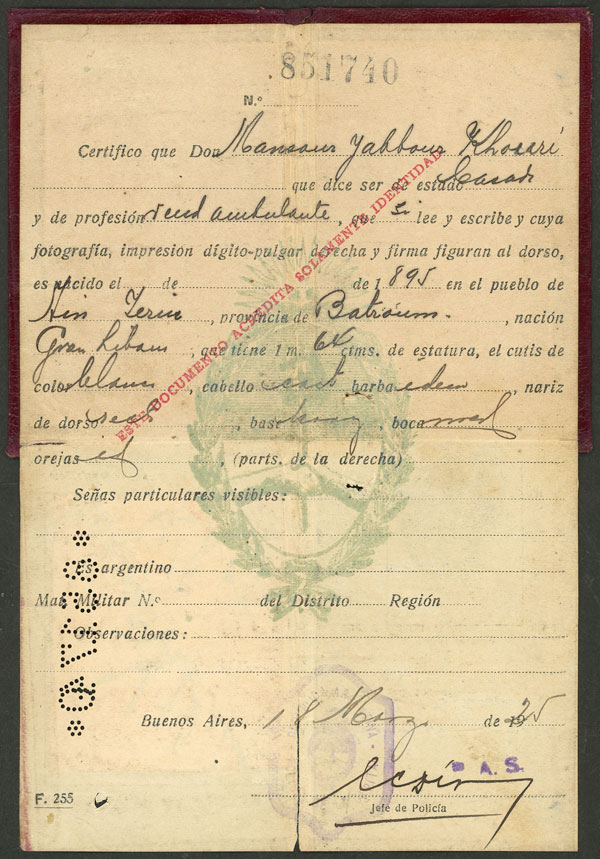 851740
N.º
Certifico que Don Mansour Yabbour Khoueri
que dice ser de estado Casado
y de profesión vend ambulante, que Si lee y escribe y cuya
fotografía, impresión dígito-pulgar derecha y firma figuran al dorso,
es nacido el de de 1895 en el pueblo de
Ain , provincia de Batroum, nación
Gran Libano, que tiene 1 m. 64 ctms. de estatura, el cutis de
color blanco, cabello cast barba idem, nariz
de dorso , base horz, boca med
orejas , (parts. de la derecha)
ESTE DOCUMENTO ACREDITA SOLAMENTE IDENTIDAD
Señas particulares visibles:
Es argentino
Mat. Militar N.º del Distrito Región
Observaciones:
Buenos Aires, 18 Marzo de 1925
P. A. S.
Jefe de Policía
F. 255